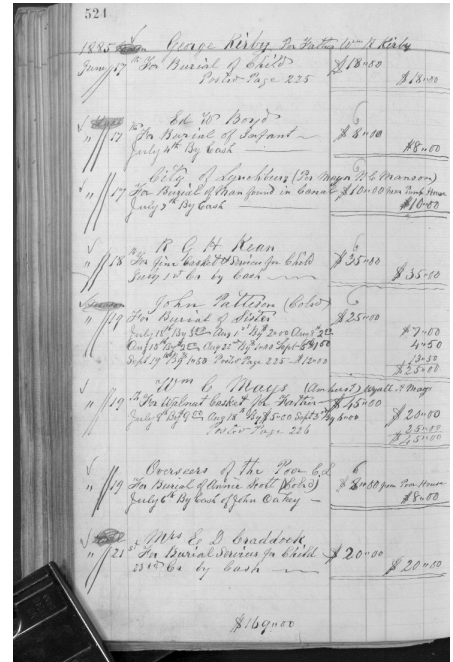 524
1885 George Kirby Per Father Wm R Kirby
June 17th For Burial of Child $18"00
Posted Page 225 $18"00
Ed W Boyd
" 17th For Burial of Infant $8"00
July 4th By Cash $8"00
City of Lynchburg (Per Mayor N.C. Manson)
" 17 For Burial of Man found in Canal $10"00 from Pump House
July 7th By Cash $10"00
R G H Kean
" 18th For fine Casket & Services for Child $35"00
July 1st Cr by Cash $35"00
John Patteson (Cold)
" 19 For Burial of Sister $25"00
July 18th By Aug 1st By 2"00 $7"00
Aug 15th By Aug 22nd By 1"00 Sept 4"50
Sept 19th By 1"50 Posted Page 225 - $12"00 13"50
$25"00
Wm C Mays (Amherst) Wyatt A Mays
" 19th For Walnut Casket for Father $45"00
July 8th By Aug 18th By $5"00 Sept 5th By 6"00 $20"00
Posted Page 226 25"00
$45"00
Overseers of the Poor C.L
" 19 For Burial of Annie Scott (Cold) $8"00 from Poor House
July 6th By Cash of John Oakey $8"00
Mrs E D Craddock
" 21st For Burial Services for Child $20"00
23rd Cr by Cash $20"00
$169"00